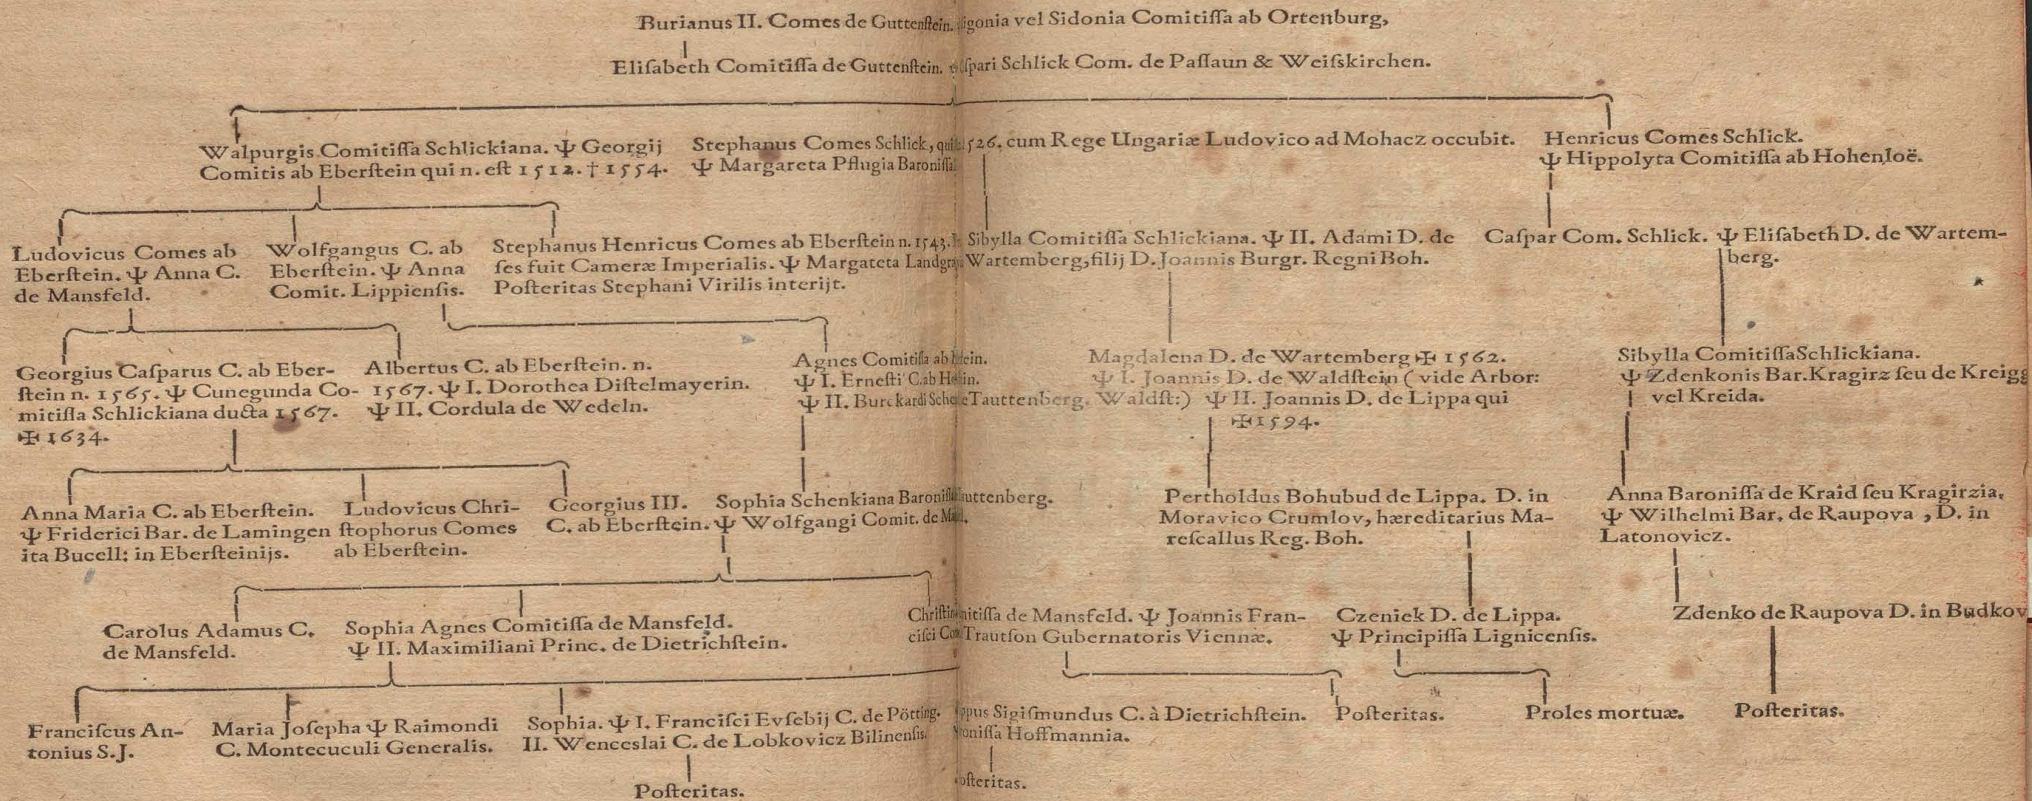 Burianus II. Comes de Guttenſtein. igonia vel Sidonia Comitiſſa ab Ortenburg,
Eliſabeth Comitiſſa de Guttenſtein. ſpari Schlick Com. de Paſſaun & Weiſskirchen.
Walpurgis Comitiſſa Schlickiana. Ψ Georgij
Comitis ab Eberſtein qui n. eſt 1512. † 1554.
Stephanus Comes Schlick, qui 1526. cum Rege Ungariæ Ludovico ad Mohacz occubit.
Ψ Margareta Pflugia Baroniſſa
Henricus Comes Schlick.
Ψ Hippolyta Comitiſſa ab Hohenloë.
Ludovicus Comes ab
Eberſtein. Ψ Anna C.
de Mansfeld.
Wolfgangus C. ab
Eberſtein. Ψ Anna
Comit. Lippienſis.
Stephanus Henricus Comes ab Eberſtein n. 1543.
ſes fuit Cameræ Imperialis. Ψ Margareta Landgr
Poſteritas Stephani Virilis interijt.
Sibylla Comitiſſa Schlickiana. Ψ II. Adami D. de
Wartemberg, filij D. Joannis Burgr. Regni Boh.
Caſpar Com. Schlick. Ψ Eliſabeth D. de Wartem-
berg.
Georgius Caſparus C. ab Eber-
ſtein n. 1565. Ψ Cunegunda Co-
mitiſſa Schlickiana ducta 1567.
✠ 1634.
Albertus C. ab Eberſtein. n.
1567. Ψ I. Dorothea Diſtelmayerin.
Ψ II. Cordula de Wedeln.
Agnes Comitiſſa ab ein.
Ψ I. Erneſti C. ab in.
Ψ II. Burckardi Sche Tauttenberg.
Magdalena D. de Wartemberg ✠ 1562.
Ψ I. Joannis D. de Waldſtein (vide Arbor:
Waldſt:) Ψ II. Joannis D. de Lippa qui
✠ 1594.
Sibylla Comitiſſa Schlickiana.
Ψ Zdenkonis Bar. Kragirz ſeu de Kreigg
vel Kreida.
Anna Maria C. ab Eberſtein.
Ψ Friderici Bar. de Lamingen
ita Bucell: in Eberſteinijs.
Ludovicus Chri-
ſtophorus Comes
ab Eberſtein.
Georgius III.
C. ab Eberſtein.
Sophia Schenkiana Baroniſſa auttenberg.
Ψ Wolfgangi Comit. de
Pertholdus Bohubud de Lippa. D. in
Moravico Crumlov, hæreditarius Ma-
reſcallus Reg. Boh.
Anna Baroniſſa de Kraid ſeu Kragirzia,
Ψ Wilhelmi Bar. de Raupova , D. in
Latonovicz.
Carolus Adamus C.
de Mansfeld.
Sophia Agnes Comitiſſa de Mansfeld.
Ψ II. Maximiliani Princ. de Dietrichſtein.
Chriſtin mitiſſa de Mansfeld. Ψ Joannis Fran-
ciſci Com Trautſon Gubernatoris Viennæ.
Czeniek D. de Lippa.
Ψ Principiſſa Lignicenſis.
Zdenko de Raupova D. in Budkov
Franciſcus An-
tonius S.J.
Maria Joſepha Ψ Raimondi
C. Montecuculi Generalis.
Sophia. Ψ I. Franciſci Evſebij C. de Pötting.
II. Wenceslai C. de Lobkovicz Bilinenſis.
Poſteritas.
ppus Sigiſmundus C. à Dietrichſtein.
oniſſa Hoffmannia.
oſteritas.
Poſteritas.
Proles mortuæ.
Poſteritas.